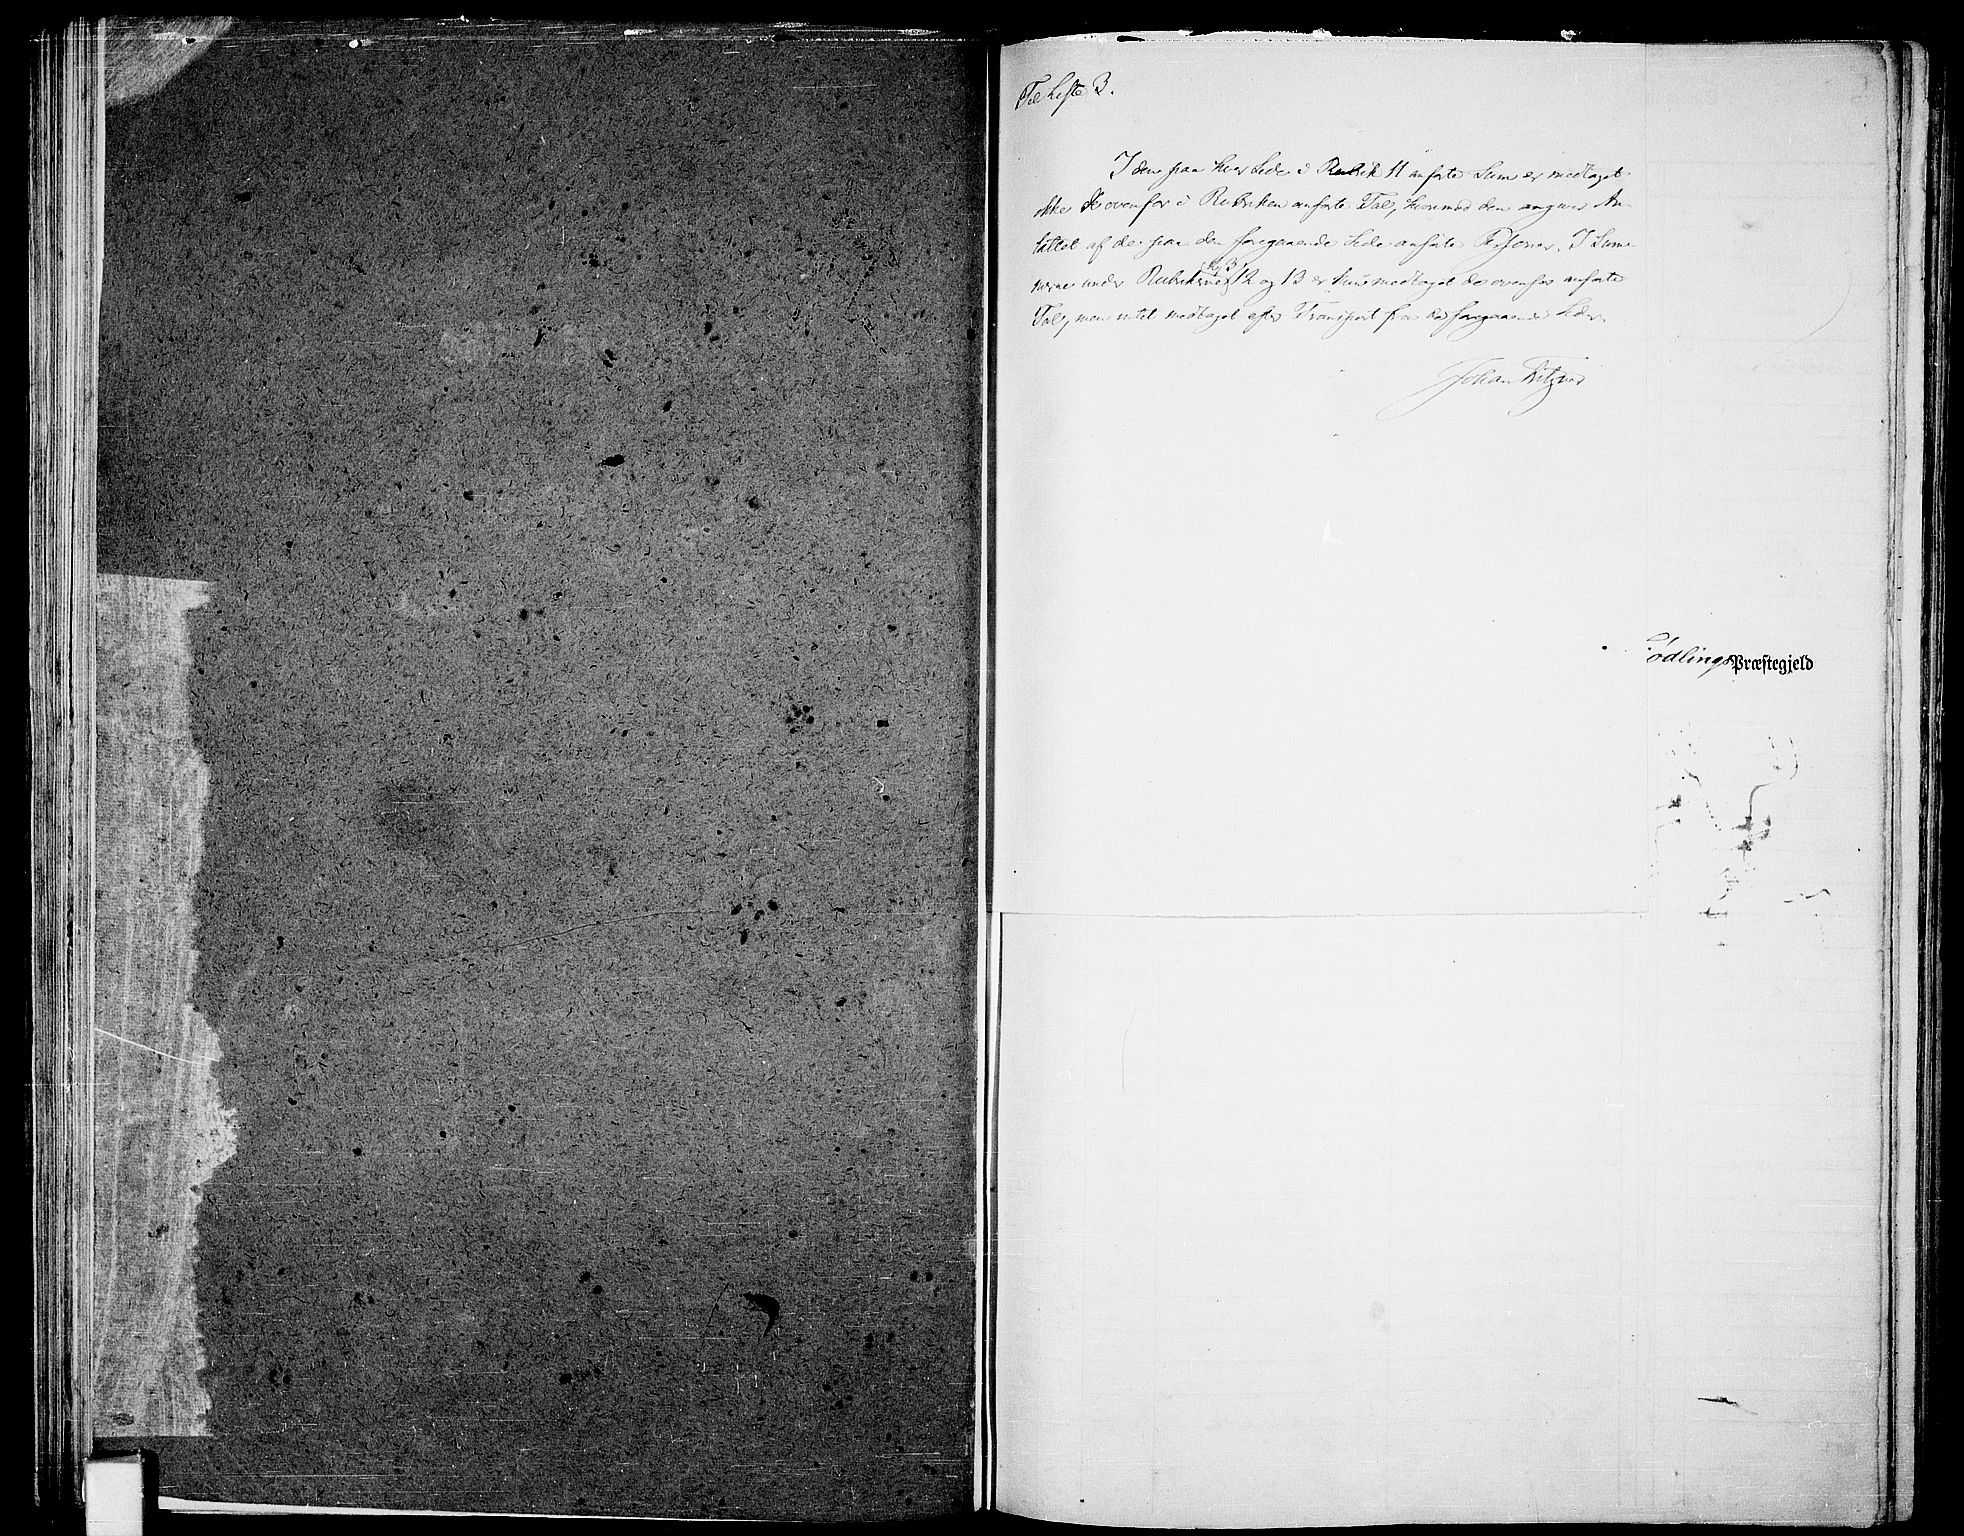 Til Liste 3.
I den paa hver Side i Rubrik 11 anførte Sum er medtaget
ikke ovenfor i Rubriken anførte Tal, hvormed den angives An-
tallet af de paa den foregaaende Side anførte Personer. I Sum-
merne under Rubrikerne 12 og 13 er kun medtaget de ovenfor anførte
Tal, men intet medtaget efter Transport fra de foregaaende Sider.
Johan
ødlings Præstegjeld